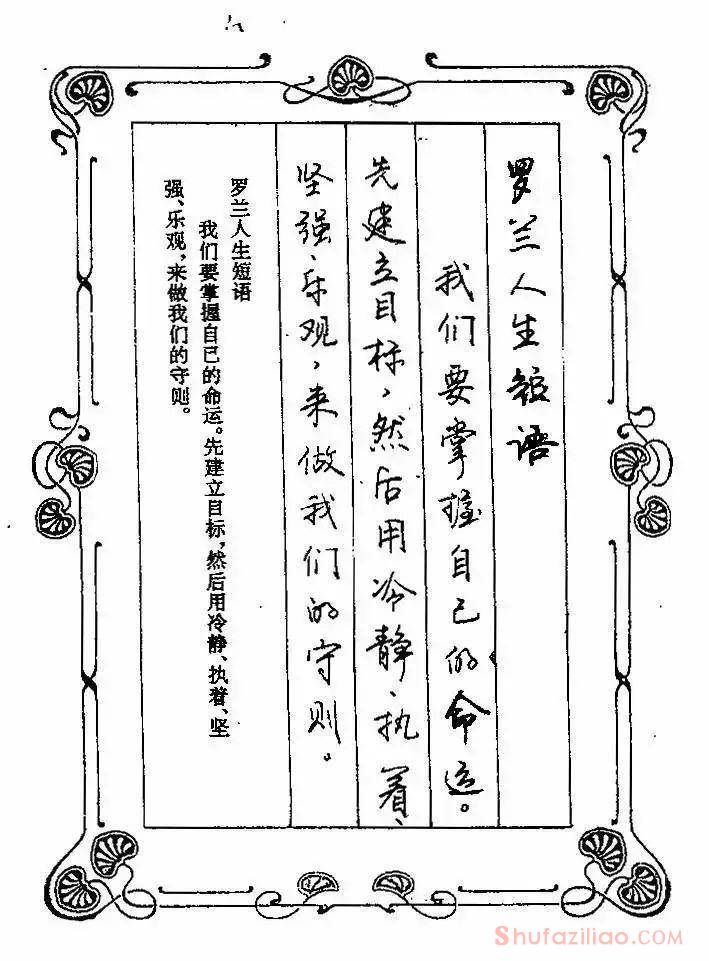 罗兰人生短语
我们要掌握自己的命运。
先建立目标，然后用冷静、执着、
坚强、乐观，来做我们的守则。
罗兰人生短语
我们要掌握自己的命运。先建立目标，然后用冷静、执着、坚
强、乐观，来做我们的守则。
Shufaziliao.com